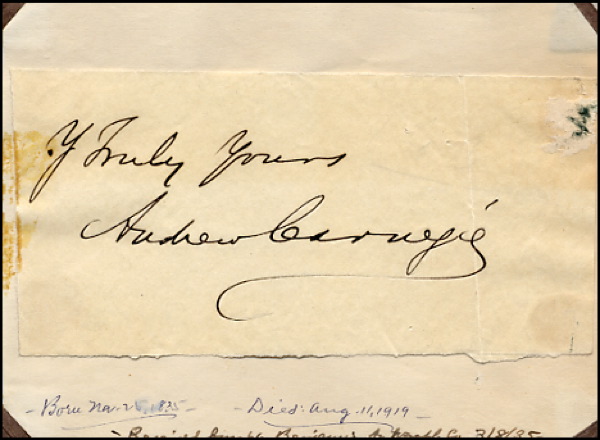 Y Truly Yours
Andrew Carnegie
- Born Nov. 25, 1835 - - Died: Aug. 11, 1919 -
3/8/95